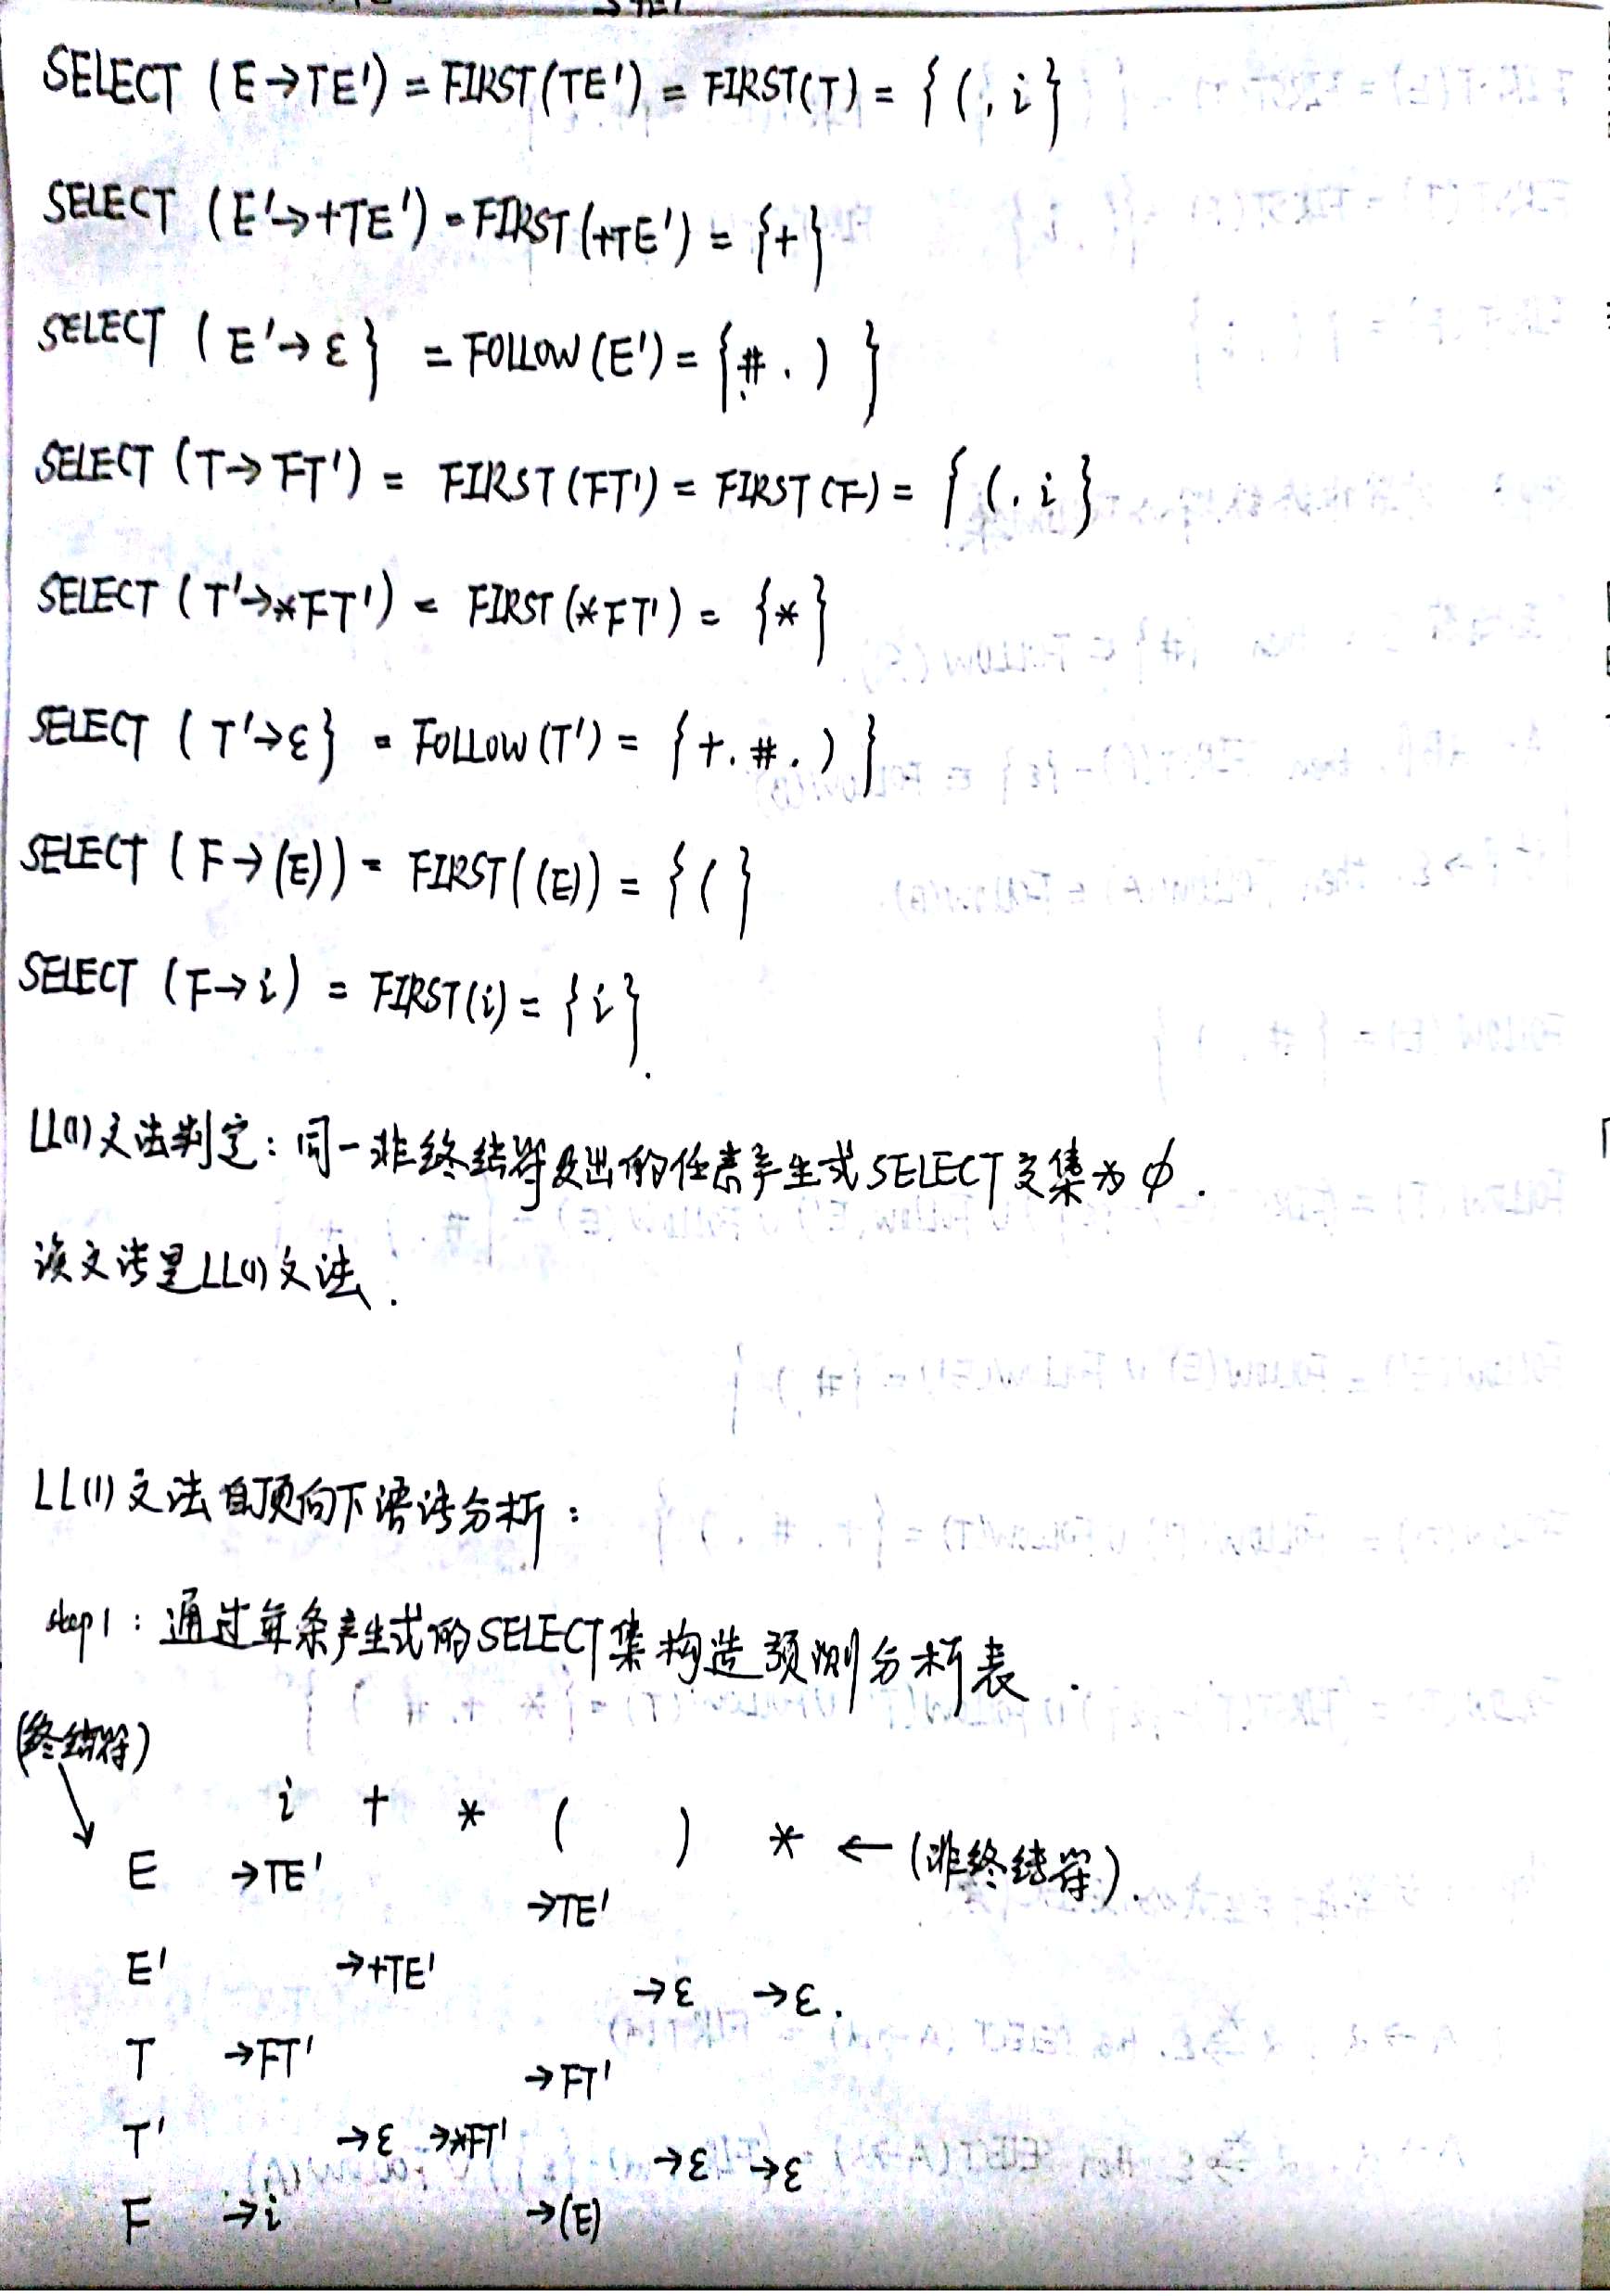 SELECT (E→TE') = FIRST(TE') = FIRST(T) = { (, i }
SELECT (E'→+TE') = FIRST(+TE') = {+}
SELECT ( E'→ε } = FOLLOW(E') = { #, ) }
SELECT (T→FT') = FIRST(FT') = FIRST(F) = { (, i }
SELECT (T'→*FT') = FIRST(*FT') = {*}
SELECT ( T'→ε } = FOLLOW(T') = { +, #, ) }
SELECT (F→(E)) = FIRST((E)) = { ( }
SELECT (F→i) = FIRST(i) = {i}.
LL(1)文法判定：同一非终结符发出的任意产生式SELECT交集为∅.
该文法是LL(1)文法.
LL(1)文法自顶向下语法分析：
step1：通过每条产生式的SELECT集构造预测分析表.
(终结符)
i + * ( ) * ← (非终结符).
E →TE' →TE'
E' →+TE' →ε →ε.
T →FT' →FT'
T' →ε →*FT' →ε →ε
F →i →(E)